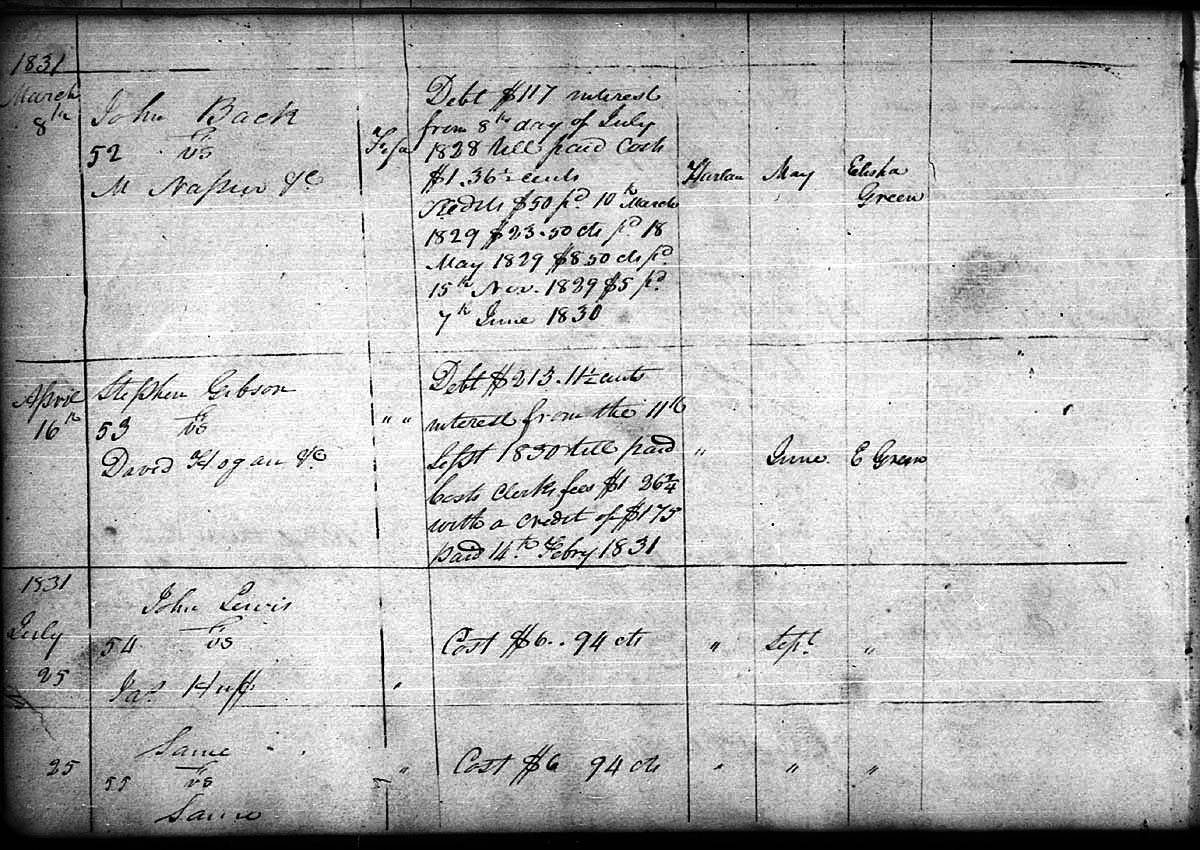 1831
March
8th
John Back
52 vs
M Napier &c
Fi fa
Debt $117 interest
from 8th day of July
1828 till paid Costs
$1.36½ cents
Credits $50 pd 10th March
1829 $23.50 cts pd 18
May 1829 $8.50 cts pd
15th Nov. 1829 $5 pd
7th June 1830
Harlan May Elisha
Green
April
16th
Stephen Gibson
53 vs
David Hogan &c
" "
Debt $213.11½ cents
interest from the 11th
Sept 1830 till paid
Costs Clerks fees $1 26¾
with a credit of $175
paid 14th Febry 1831
" June E Green
1831
July
25
John Lewis
54 vs
Jas Huff
"
Cost $6..94 cts
" Sept "
25
Same
55 vs
Same
"
Cost $6 94 cts
" " "